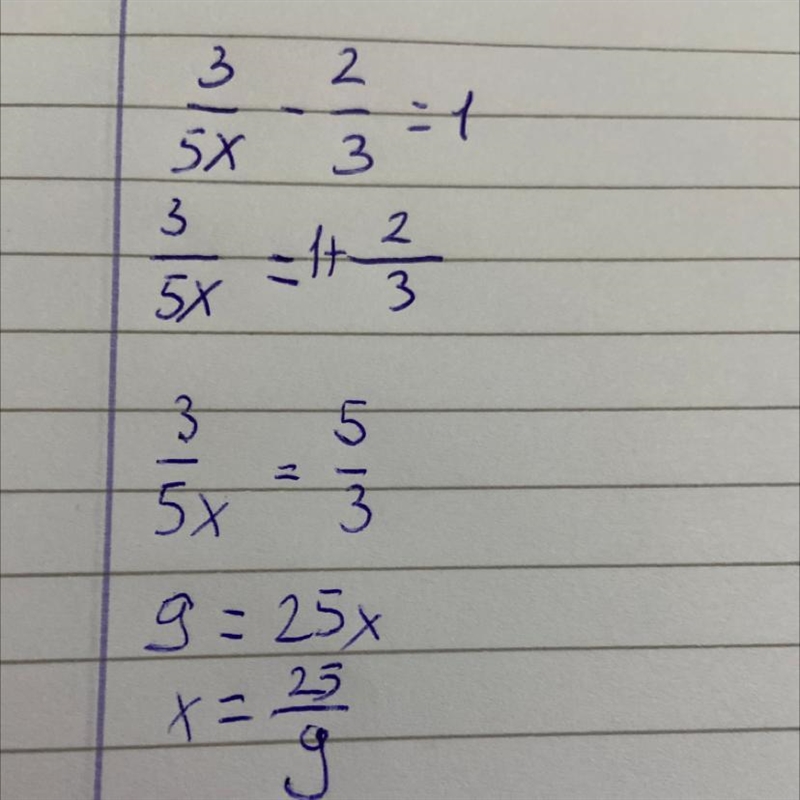 3/5x - 2/3 = 1
3/5x = 1 + 2/3
3/5x = 5/3
9 = 25x
x = 25/9